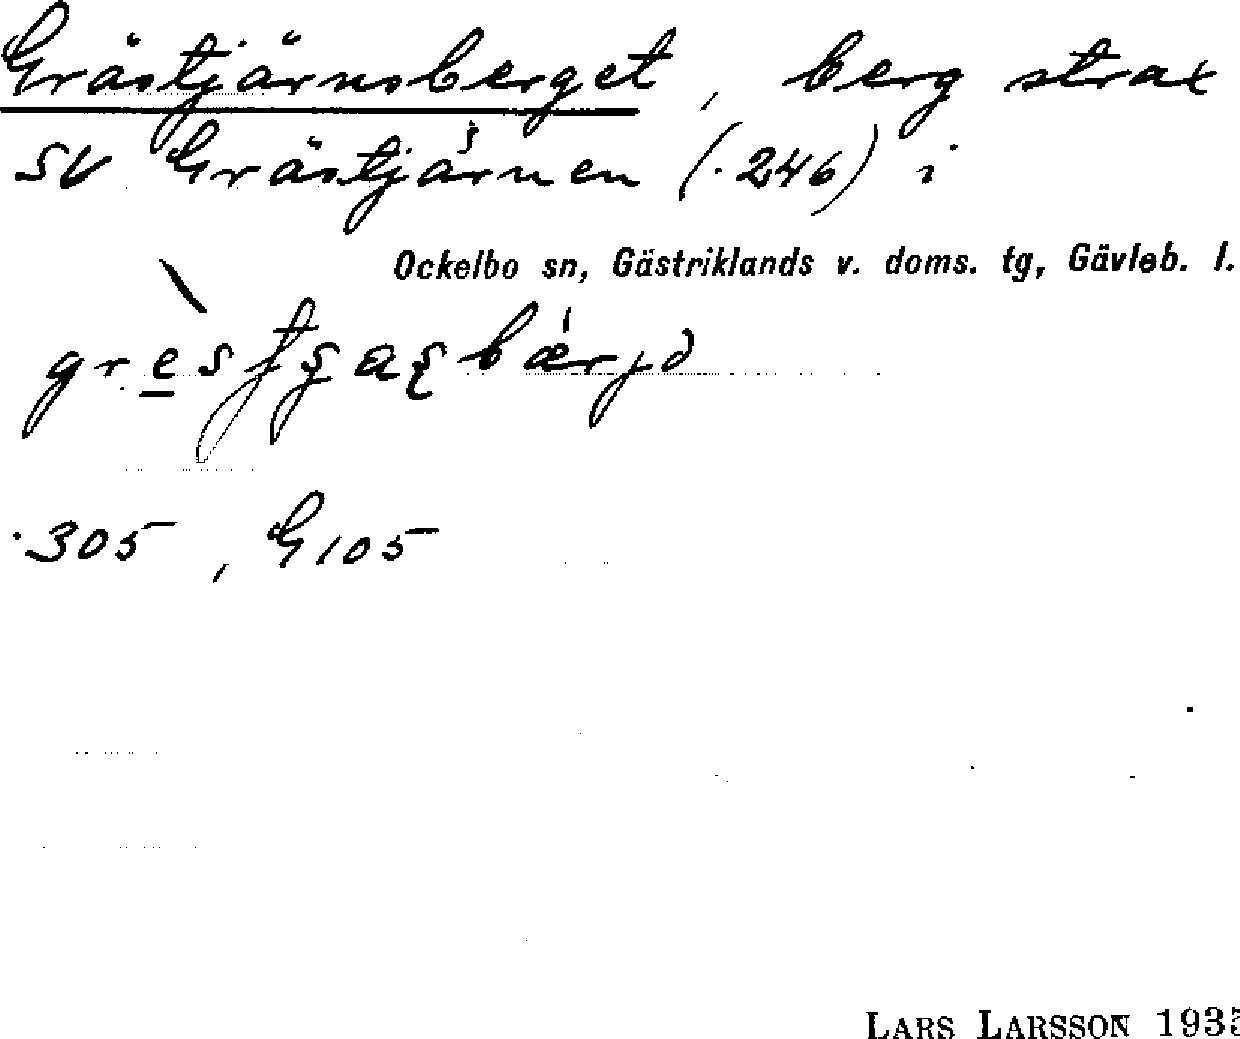 Grästjärnsberget, berg strax
SV Grästjärnen (.246) i
Ockelbo sn, Gästriklands v. doms. tg, Gävleb. l.
.305, G105
LARS LARSSON 193